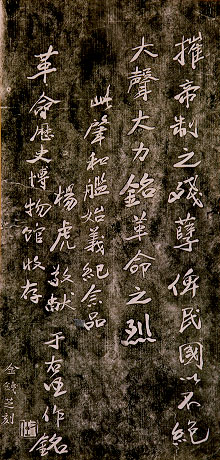 摧帝制之残孽俾民國以不絕
大聲大力銘革命之烈
此肇和艦始義紀念品
楊虎敬献 于右任作銘
革命歷史博物馆收存
金錢芝刻